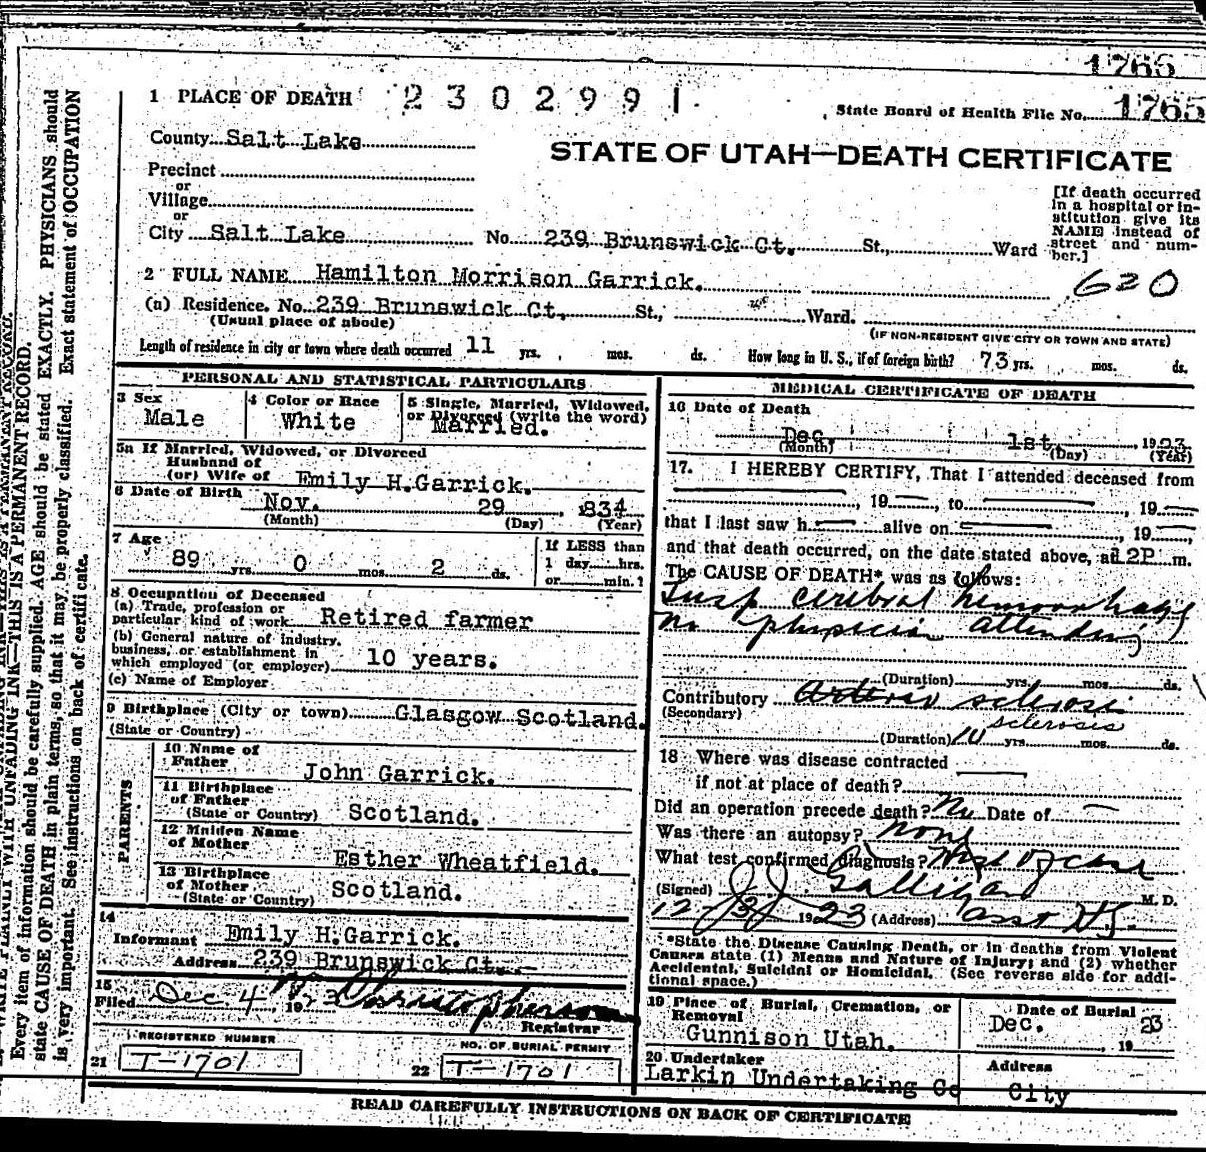 1766
1 PLACE OF DEATH 2302991
State Board of Health File No. 1765
County Salt Lake
STATE OF UTAH—DEATH CERTIFICATE
Precinct
or
Village
or
City Salt Lake No. 239 Brunswick Ct. St., Ward
[If death occurred in a hospital or institution give its NAME instead of street and number.]
2 FULL NAME Hamilton Morrison Garrick.
620
(a) Residence, No. 239 Brunswick Ct., St., Ward.
(Usual place of abode)
(IF NON-RESIDENT GIVE CITY OR TOWN AND STATE)
Length of residence in city or town where death occurred 11 yrs. mos. ds. How long in U. S., if of foreign birth? 73 yrs. mos. ds.
PERSONAL AND STATISTICAL PARTICULARS
3 Sex
Male
4 Color or Race
White
5 Single, Married, Widowed, or Divorced (write the word)
Married.
5a If Married, Widowed, or Divorced
Husband of
(or) Wife of Emily H.Garrick.
6 Date of Birth Nov. 29 , 1834
(Month) (Day) (Year)
7 Age
89 yrs. 0 mos. 2 ds.
If LESS than
1 day hrs.
or min.?
8 Occupation of Deceased
(a) Trade, profession or
particular kind of work Retired farmer
(b) General nature of industry,
business, or establishment in
which employed (or employer) 10 years.
(c) Name of Employer
9 Birthplace (City or town) Glasgow Scotland.
(State or Country)
PARENTS
10 Name of
Father
John Garrick.
11 Birthplace
of Father
(State or Country) Scotland.
12 Maiden Name
of Mother
Esther Wheatfield.
13 Birthplace
of Mother
(State or Country) Scotland.
14
Informant Emily H.Garrick.
Address 239 Brunswick Ct.
15
Filed Dec 4, 1923 Christopherson
Registrar
REGISTERED NUMBER
21 T-1701
NO. OF BURIAL PERMIT
22 T-1701
MEDICAL CERTIFICATE OF DEATH
16 Date of Death
Dec. 1st 1923
(Month) (Day) (Year)
17. I HEREBY CERTIFY, That I attended deceased from
, 19 , to , 19
that I last saw h alive on , 19 ,
and that death occurred, on the date stated above, at 12P m.
The CAUSE OF DEATH* was as follows:
Susp cerebral hemorrhage
No physician attending
(Duration) yrs. mos. ds.
Contributory Arterio sclerosi
(Secondary) sclerosis
(Duration) 10 yrs. mos. ds.
18 Where was disease contracted
if not at place of death?
Did an operation precede death? No Date of
Was there an autopsy? None
What test confirmed diagnosis? Hist of case
(Signed) Galligan M. D.
12-/3/ 1923 (Address) asst
*State the Disease Causing Death, or in deaths from Violent
Causes state (1) Means and Nature of Injury; and (2) whether
Accidental, Suicidal or Homicidal. (See reverse side for additional space.)
19 Place of Burial, Cremation, or
Removal
Gunnison Utah.
Date of Burial
Dec. 23
, 19
20 Undertaker
Larkin Undertaking Co
Address
City
READ CAREFULLY INSTRUCTIONS ON BACK OF CERTIFICATE
WITH UNFADING INK—THIS IS A PERMANENT RECORD.
Every item of information should be carefully supplied. AGE should be stated EXACTLY. PHYSICIANS should
state CAUSE OF DEATH in plain terms, so that it may be properly classified. Exact statement of OCCUPATION
is very important. See instructions on back of certificate.